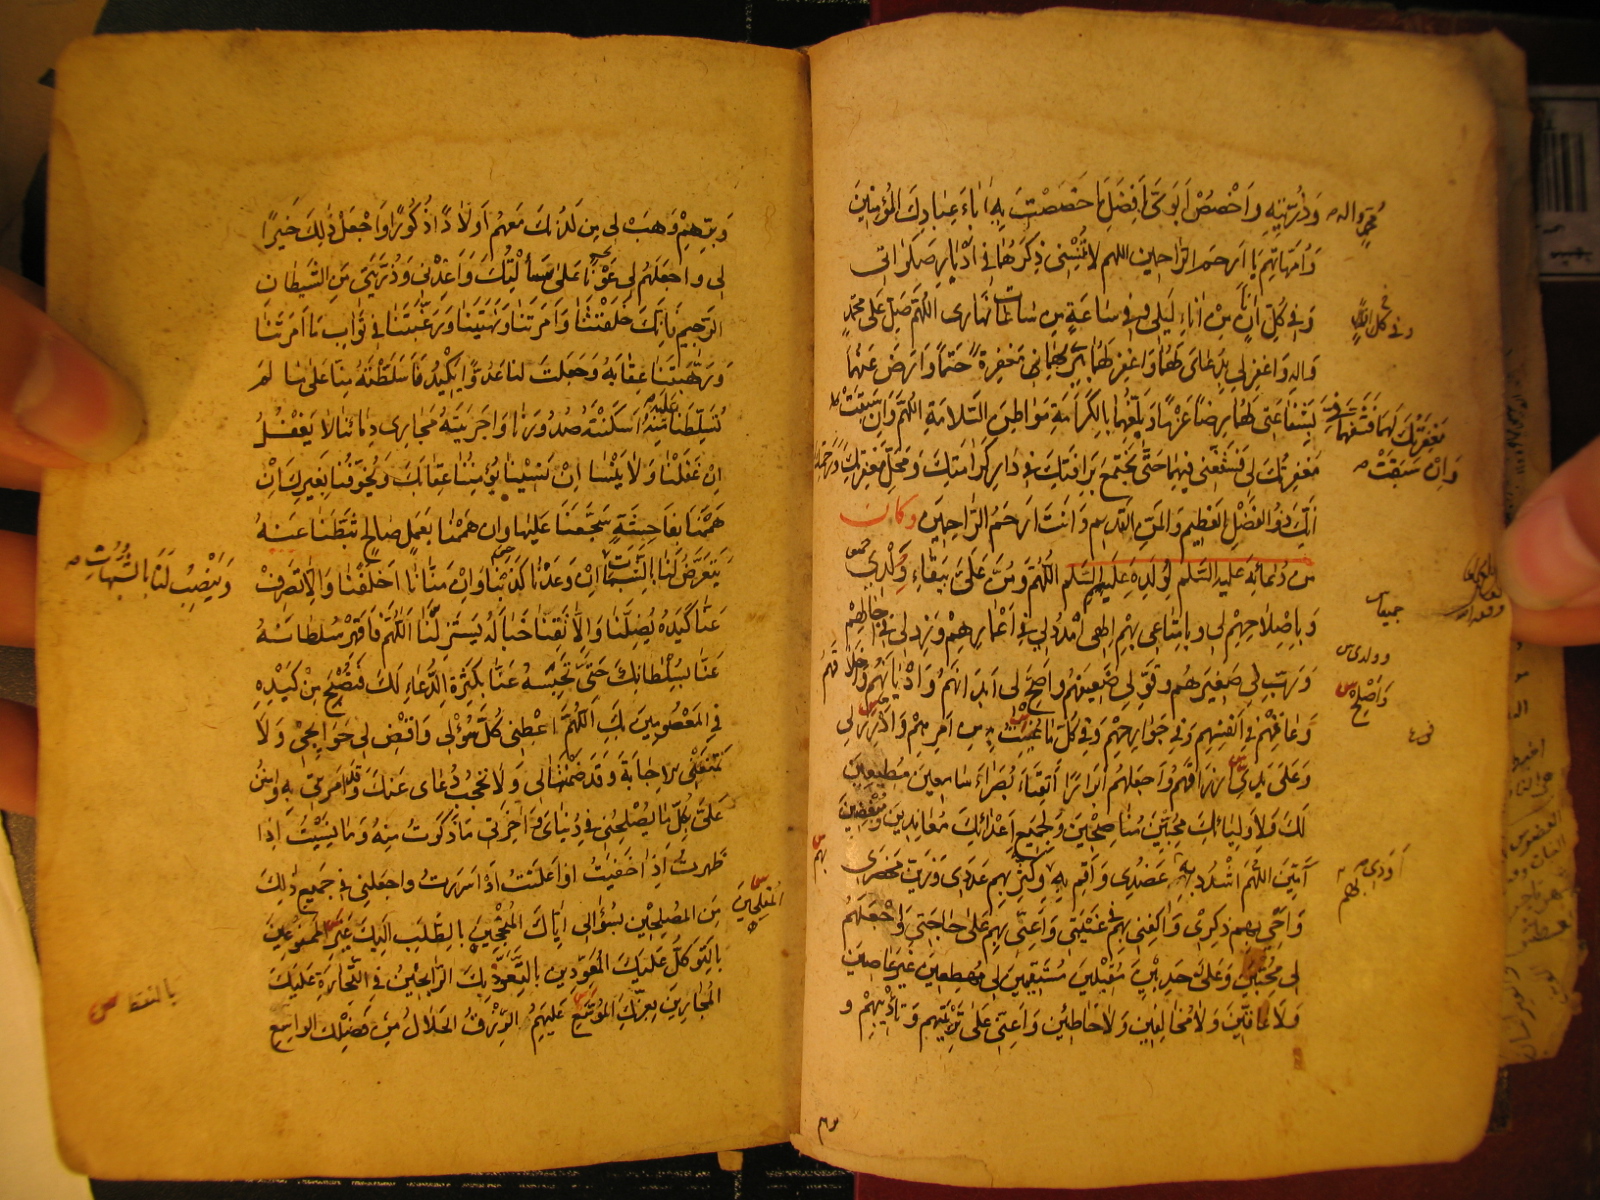 وَذُرِّيَّتِهِ وَاخْصُصْ اَبَوَىَّ بِاَفْضَلِ مَا خَصَصْتَ بِهِ اٰبَاءَ عِبَادِكَ المُؤْمِنِينَ
وَاُمَّهَاتِهِمْ يَا اَرْحَمَ الرَّاحِمِينَ اللهم لَا تُنْسِنِى ذِكْرَهُمَا فِى اَدْبَارِ صَلَوَاتِى
وَفِى كُلِّ اٰنٍ مِنْ اٰنَاءِ لَيْلِى وَفِى سَاعَةٍ مِنْ سَاعَاتِ نَهَارِى اَللّٰهُمَّ صَلِّ عَلٰى مُحَمَّدٍ
وَاٰلِهِ وَاغْفِرْ لِى بِدُعَائِى لَهُمَا وَاغْفِرْ لَهُمَا بِبِرِّهِمَا بِى مَغْفِرَةً حَتْمًا وَارْضَ عَنْهُمَا
بِشَفَاعَتِى لَهُمَا رِضًا عَزْمًا وَبَلِّغْهُمَا بِالكَرَامَةِ مَوَاطِنَ السَّلَامَةِ اَللّٰهُمَّ وَاِنْ سَبَقَتْ
مَغْفِرَتُكَ لِى فَشَفِّعْنِى فِيهِمَا حَتّٰى نَجْتَمِعَ بِرَاْفَتِكَ فِى دَارِ كَرَامَتِكَ وَمَحَلِّ مَغْفِرَتِكَ وَرَحْمَتِكَ
اِنَّكَ ذُو الفَضْلِ العَظِيمِ وَالمَنِّ القَدِيمِ وَاَنْتَ اَرْحَمُ الرَّاحِمِينَ وكان
مِنْ دُعَائِهِ عليه السَّلم لِوُلْدِهِ عَلَيْهِمُ السَّلم اَللّٰهُمَّ وَمُنَّ عَلَىَّ بِبَقَاءِ وُلْدِى
وَبِاِصْلَاحِهِمْ لِى وَبِاِمْتَاعِى بِهِمْ اِلٰهِى اُمْدُدْ لِى فِى اَعْمَارِهِمْ وَزِدْ لِى فِى اٰجَالِهِمْ
وَرَبِّ لِى صَغِيرَهُمْ وَقَوِّ لِى ضَعِيفَهُمْ وَاَصِحَّ لِى اَبْدَانَهُمْ وَاَدْيَانَهُمْ وَاَخْلَاقَهُمْ
وَعَافِهِمْ فِى اَنْفُسِهِمْ وَفِى جَوَارِحِهِمْ وَفِى كُلِّ مَا عُنِيتُ بِهِ مِنْ اَمْرِهِمْ وَاَدْرِرْ لِى
وَعَلٰى يَدِى اَرْزَاقَهُمْ وَاجْعَلْهُمْ اَبْرَارًا اَتْقِيَاءَ بُصَرَاءَ سَامِعِينَ مُطِيعِينَ
لَكَ وَلِاَوْلِيَائِكَ مُحِبِّينَ مُنَاصِحِينَ وَلِجَمِيعِ اَعْدَائِكَ مُعَانِدِينَ وَمُبْغِضِينَ
اٰمِينَ اَللّٰهُمَّ اشْدُدْ بِهِمْ عَضُدِى وَاَقِمْ بِهِمْ وَكَثِّرْ بِهِمْ عَدَدِى وَزَيِّنْ بِهِمْ مَحْضَرِى
وَاَحْىِ بِهِمْ ذِكْرِى وَاكْفِنِى بِهِمْ فِى غَيْبَتِى وَاَعِنِّى بِهِمْ عَلٰى حَاجَتِى وَاجْعَلْهُمْ
لِى مُحِبِّينَ وَعَلَىَّ حَدِبِينَ مُقْبِلِينَ مُسْتَقِيمِينَ لِى مُطِيعِينَ غَيْرَ عَاصِينَ
وَلَا عَاقِّينَ وَلَا مُخَالِفِينَ وَلَا خَاطِئِينَ وَاَعِنِّى عَلٰى تَرْبِيَتِهِمْ وَتَاْدِيبِهِمْ وَ
مُحَمَّدٍ وَاٰلِهِ
وَفِى كُلِّ اٰنٍ
مَغْفِرَتُكَ لَهُمَا فَشَفِّعْهُمَا فِىَّ
وَاِنْ سَبَقَتْ
وولدى س
وَاَصْلِحْ س
بهم
وَبِرِّهِمْ وَهَبْ لِى مِنْ لَدُنْكَ مَعَهُمْ اَوْلَادًا ذُكُورًا وَاجْعَلْ ذٰلِكَ خَيْرًا
لِى وَاجْعَلْهُمْ لِى عَوْنًا عَلٰى مَا سَاَلْتُكَ وَاَعِذْنِى وَذُرِّيَّتِى مِنَ الشَّيْطَانِ
الرَّجِيمِ فَاِنَّكَ خَلَقْتَنَا وَاَمَرْتَنَا وَنَهَيْتَنَا وَرَغَّبْتَنَا فِى ثَوَابِ مَا اَمَرْتَنَا
وَرَهَّبْتَنَا عِقَابَهُ وَجَعَلْتَ لَنَا عَدُوًّا يَكِيدُنَا سَلَّطْتَهُ مِنَّا عَلٰى مَا لَمْ
تُسَلِّطْنَا عَلَيْهِ مِنْهُ اَسْكَنْتَهُ صُدُورَنَا وَاَجْرَيْتَهُ مَجَارِىَ دِمَائِنَا لَا يَغْفُلُ
اِنْ غَفَلْنَا وَلَا يَنْسٰا اِنْ نَسِينَا يُؤْمِنُنَا عِقَابَكَ وَيُخَوِّفُنَا بِغَيْرِكَ اِنْ
هَمَمْنَا بِفَاحِشَةٍ شَجَّعَنَا عَلَيْهَا وَاِنْ هَمَمْنَا بِعَمَلٍ صَالِحٍ ثَبَّطَنَا عَنْهُ
يَتَعَرَّضُ لَنَا بِالشَّهَوَاتِ اِنْ وَعَدَنَا كَذَبَنَا وَاِنْ مَنَّانَا اَخْلَفَنَا وَاِلَّا تَصْرِفْ
عَنَّا كَيْدَهُ يُضِلَّنَا وَاِلَّا تَقِنَا خَبَالَهُ يَسْتَزِلَّنَا اَللّٰهُمَّ فَاقْهَرْ سُلْطَانَهُ
عَنَّا بِسُلْطَانِكَ حَتّٰى تَحْبِسَهُ عَنَّا بِكَثْرَةِ الدُّعَاءِ لَكَ فَنُصْبِحَ مِنْ كَيْدِهِ
فِى المَعْصُومِينَ بِكَ اَللّٰهُمَّ اَعْطِنِى كُلَّ سُؤْلِى وَاقْضِ لِى حَوَائِجِى وَلَا
تَمْنَعْنِى الْاِجَابَةَ وَقَدْ ضَمِنْتَهَا لِى وَلَا تَحْجُبْ دُعَائِى عَنْكَ وَقَدْ اَمَرْتَنِى بِهِ وَامْنُنْ
عَلَىَّ بِكُلِّ مَا يُصْلِحُنِى فِى دُنْيَاىَ وَاٰخِرَتِى مَا ذَكَرْتُ مِنْهُ وَمَا نَسِيتُ اَوْ
ظهرتُ اَوْ اَخْفَيْتُ اَوْ اَعْلَنْتُ اَوْ اَسْرَرْتُ وَاجْعَلْنِى فِى جَمِيعِ ذٰلِكَ
مِنَ المُصْلِحِينَ بِسُؤَالِى اِيَّاكَ المُنْجِحِينَ بِالطَّلَبِ اِلَيْكَ غَيْرِ المَمْنُوعِينَ
بِالتَّوَكُّلِ عَلَيْكَ المُعَوَّذِينَ بِالتَّعَوُّذِ بِكَ الرَّابِحِينَ فِى التِّجَارَةِ عَلَيْكَ
المُجَارِينَ بِعِزِّكَ المُوَسَّعِ عَلَيْهِمُ الرِّزْقُ الحَلَالُ مِنْ فَضْلِكَ الوَاسِعِ
وَيَنْصِبُ لَنَا بِالشُّبُهَاتِ
المُفْلِحِينَ